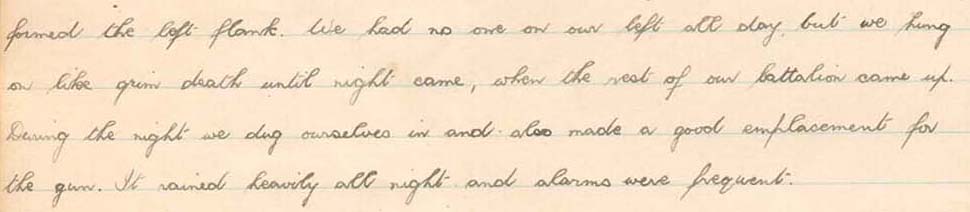 formed the left flank. We had no one on our left all day, but we hung
on like grim death until night came, when the rest of our battalion came up.
During the night we dug ourselves in and also made a good emplacement for
the gun. It rained heavily all night and alarms were frequent.